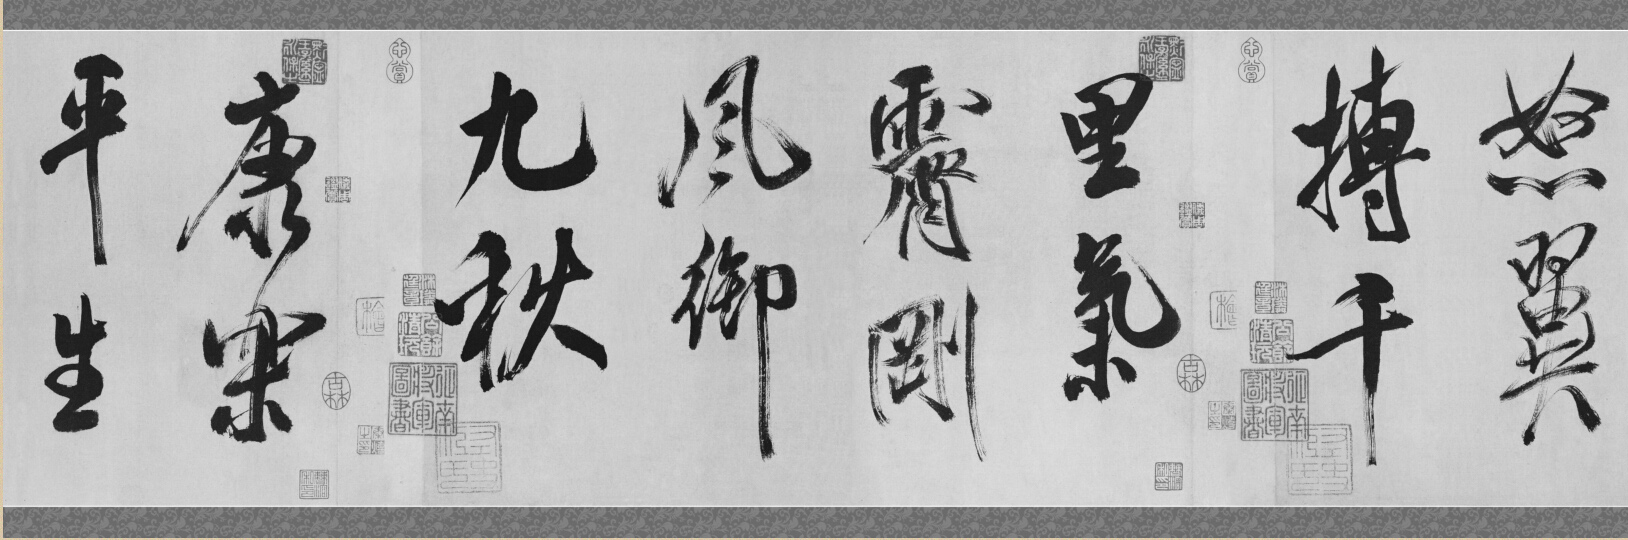 怒翼
搏千
里氣
霽剛
風御
九秋
康樂
平生